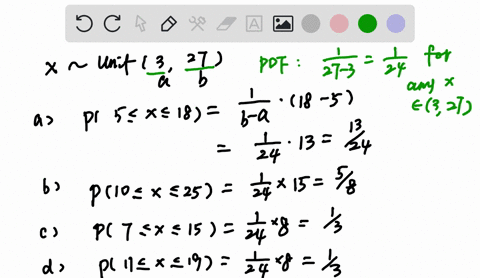 x ~ Unif (3, 27)
a b
PDF: 1/(27-3) = 1/24 for any x ∈ (3, 27)
a) P( 5 ≤ x ≤ 18) = 1/(b-a) · (18 - 5)
= 1/24 · 13 = 13/24
b) P(10 ≤ x ≤ 25) = 1/24 × 15 = 5/8
c) P( 7 ≤ x ≤ 15) = 1/24 × 8 = 1/3
d) P( 11 ≤ x ≤ 19) = 1/24 × 8 = 1/3